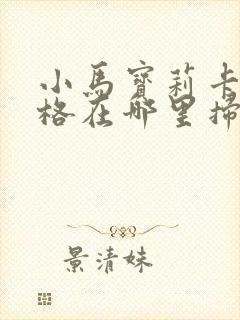 小馬寶莉卡
格在哪里掃
景清妹